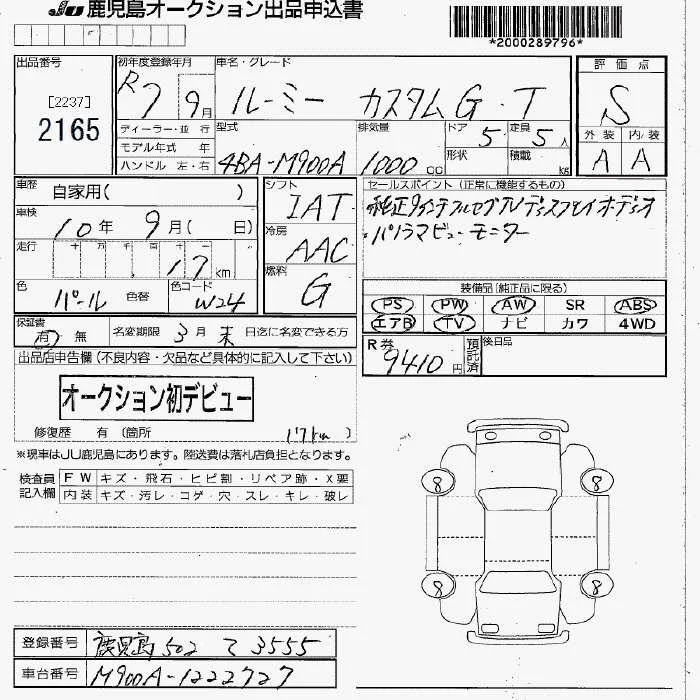 JU 鹿児島オークション出品申込書
*2000289796*
出品番号
[2237]
2165
初年度登録年月
R7 9月
車名・グレード
ルーミー カスタムG・T
評価点
S
外装 内装
A A
ディーラー・並 行
モデル年式 年
ハンドル 左・右
型式
4BA-M900A
排気量
1000 CC
ドア 5
定員 5人
形状
積載 kg
車歴 自家用( )
車検 10年 9月( 日)
走行 十 万 千 百 十
17 km
色 パール 色替
色コード W24
シフト
IAT
冷房
AAC
燃料
G
セールスポイント (正常に機能するもの)
純正9インチフルセグTVディスプレイオーディオ
パノラマビューモニター
装備品(純正品に限る)
PS PW AW SR ABS
エアB TV ナビ カワ 4WD
保証書 有 無
名変期限 3月末日迄に名変できる方
R券 9410円
預託済
後日品
出品店申告欄(不良内容・欠品など具体的に記入して下さい)
オークション初デビュー
修復歴 有(箇所 17km )
※現車はJU鹿児島にあります。陸送費は落札店負担となります。
検査員記入欄
FW キズ・飛石・ヒビ割・リペア跡・X要
内装 キズ・汚レ・コゲ・穴・スレ・キレ・破レ
8 8
8 8
登録番号 鹿児島 502 て 3555
車台番号 M900A-1222727